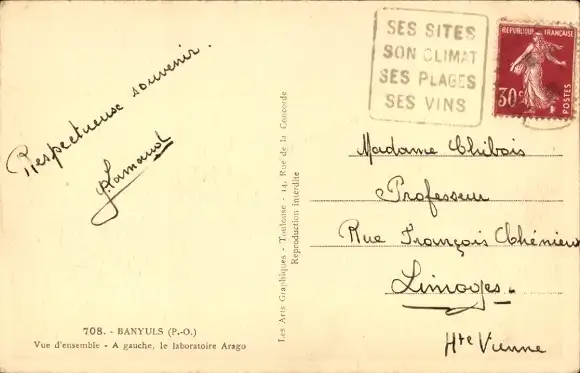 SES SITES
SON CLIMAT
SES PLAGES
SES VINS
REPUBLIQUE FRANÇAISE
30c
POSTES
Respectueux souvenir.
Madame Chibois
Professeur
Rue François Chénieux
Limoges.
Hte Vienne
Les Arts Graphiques - Toulouse - 14, Rue de la Concorde
Reproduction interdite
708. - BANYULS (P.-O.)
Vue d'ensemble - A gauche, le laboratoire Arago